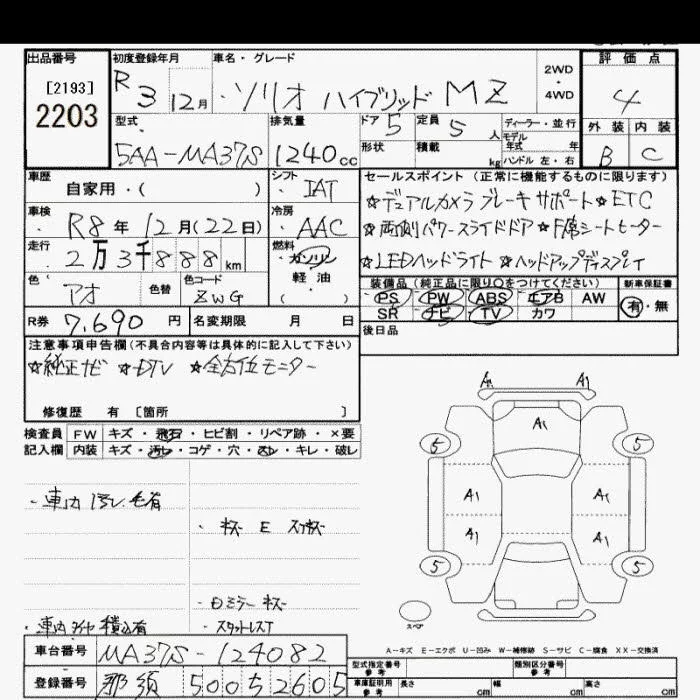 出品番号
[2193]
2203
初度登録年月
R 3 12月
車名・グレード
ソリオ ハイブリッド MZ
2WD
・
4WD
評価点
4
外装 内装
B C
型式
5AA-MA37S
排気量
1240cc
ドア 5
定員 5人
ディーラー・並行
モデル
年式 年
形状
積載 kg
ハンドル 左・右
車歴
自家用・( )
シフト
IAT
車検
R8年 12月(22日)
冷房
AAC
走行
2万3千888km
燃料
ガソリン
軽油
( )
色
アオ
色替
色コード
ZWG
R券 7,690円
名変期限 月 日
セールスポイント(正常に機能するものに限ります)
☆デュアルカメラブレーキサポート☆ETC
☆両側パワースライドドア☆F席シートヒーター
☆LEDヘッドライト☆ヘッドアップディスプレイ
装備品(純正品に限り○をつけてください)
PS PW ABS エアB AW
SR ナビ TV カワ
新車保証書
有・無
後日品
注意事項申告欄(不具合内容等は具体的に記入して下さい)
☆純正ナビ ☆DTV ☆全方位モニター
修復歴 有 〔箇所 〕
検査員
記入欄
FW キズ・飛石・ヒビ割・リペア跡・×要
内装 キズ・汚レ・コゲ・穴・スレ・キレ・破レ
・車内汚レ毛有
・キズ E スリキズ
・Dミラーキズ
・車内タイヤ積込有
・スタットレスT
A1 A1
A1
5 5
A1 A1
A1 A1
5 5
スペア
A-キズ E-エクボ U-凹み W-補修跡 S-サビ C-腐食 XX-交換済
車台番号 MA37S-124082
登録番号 那須 500 さ 2605
型式指定番号
参考
類別区分番号
参考
車庫証明用
参考
長さ cm
幅 cm
高さ cm